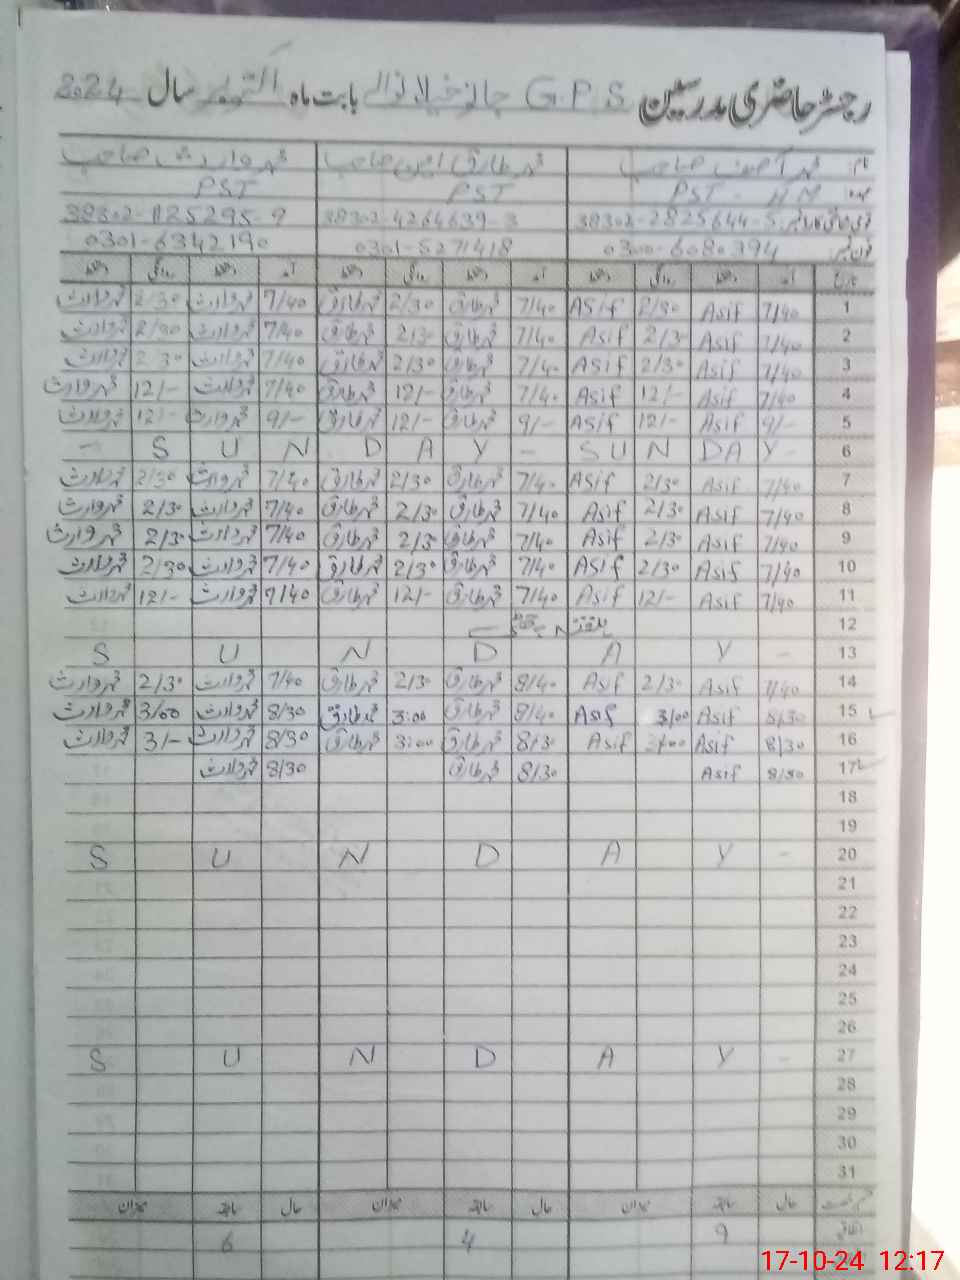 رجسٹر حاضری مدرسین G.P.S جالو خیلانوالے بابت ماہ اکتوبر سال 2024
نام محمد آصف صاحب محمد طارق امین صاحب محمد وارث صاحب
عہدہ PST - HM PST PST
38302-2825644-5 38302-4264639-3 38302-1125295-9
فون نمبر 0300-6080394 0301-5271418 0301-6342190
تاریخ آمد دستخط روانگی دستخط آمد دستخط روانگی دستخط آمد دستخط روانگی دستخط
1 7/40 Asif 2/30 Asif 7/40 محمد طارق 2/30 محمد طارق 7/40 محمد وارث 2/30 محمد وارث
2 7/40 Asif 2/30 Asif 7/40 محمد طارق 2/30 محمد طارق 7/40 محمد وارث 2/30 محمد وارث
3 7/40 Asif 2/30 Asif 7/40 محمد طارق 2/30 محمد طارق 7/40 محمد وارث 2/30 محمد وارث
4 7/40 Asif 12/- Asif 7/40 محمد طارق 12/- محمد طارق 7/40 محمد وارث 12/- محمد وارث
5 9/- Asif 12/- Asif 9/- محمد طارق 12/- محمد طارق 9/- محمد وارث 12/- محمد وارث
6 - S U N D A Y - S U N D A Y -
7 7/40 Asif 2/30 Asif 7/40 محمد طارق 2/30 محمد طارق 7/40 محمد وارث 2/30 محمد وارث
8 7/40 Asif 2/30 Asif 7/40 محمد طارق 2/30 محمد طارق 7/40 محمد وارث 2/30 محمد وارث
9 7/40 Asif 2/30 Asif 7/40 محمد طارق 2/30 محمد طارق 7/40 محمد وارث 2/30 محمد وارث
10 7/40 Asif 2/30 Asif 7/40 محمد طارق 2/30 محمد طارق 7/40 محمد وارث 2/30 محمد وارث
11 7/40 Asif 12/- Asif 7/40 محمد طارق 12/- محمد طارق 7/40 محمد وارث 12/- محمد وارث
12
13 S U N D A Y -
14 7/40 Asif 2/30 Asif 8/40 محمد طارق 2/30 محمد طارق 7/40 محمد وارث 2/30 محمد وارث
15 8/30 Asif 3/00 Asif 8/40 محمد طارق 3:00 محمد طارق 8/30 محمد وارث 3/00 محمد وارث
16 8/30 Asif 3/00 Asif 8/30 محمد طارق 3:00 محمد طارق 8/30 محمد وارث 3/- محمد وارث
17 8/30 Asif 8/30 محمد طارق 8/30 محمد وارث
18
19
20 S U N D A Y -
21
22
23
24
25
26
27 S U N D A Y -
28
29
30
31
حال سابقہ میزان حال سابقہ میزان حال سابقہ میزان
9 4 6
17-10-24 12:17